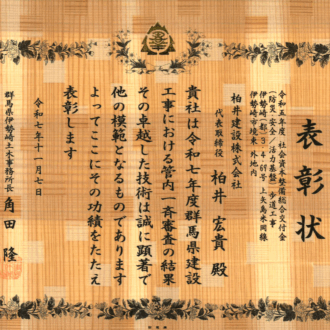 表彰状
令和五年度 社会資本整備総合交付金
(防災・安全/活力基盤) 歩道工事
伊勢崎(都) 3・4・69号 上矢島東岡線
伊勢崎市境東外地内
柏井建設株式会社
代表取締役 柏井宏貴殿
貴社は令和七年度群馬県建設
工事における管内一斉審査の結果
その卓越した技術は誠に顕著で
他の模範となるものであります
よってここにその功績をたたえ
表彰します
令和七年十一月七日
群馬県伊勢崎土木事務所長 角田隆